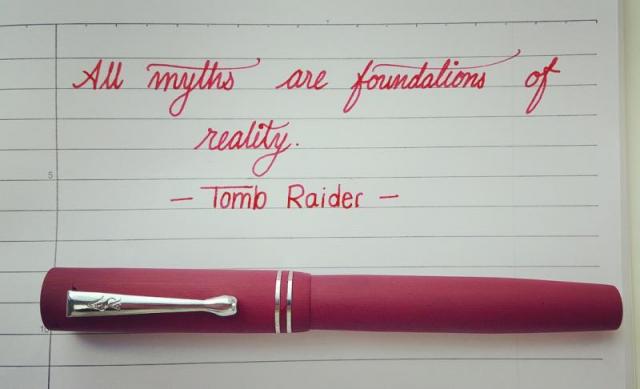 All myths are foundations of
reality.
— Tomb Raider —
5
10